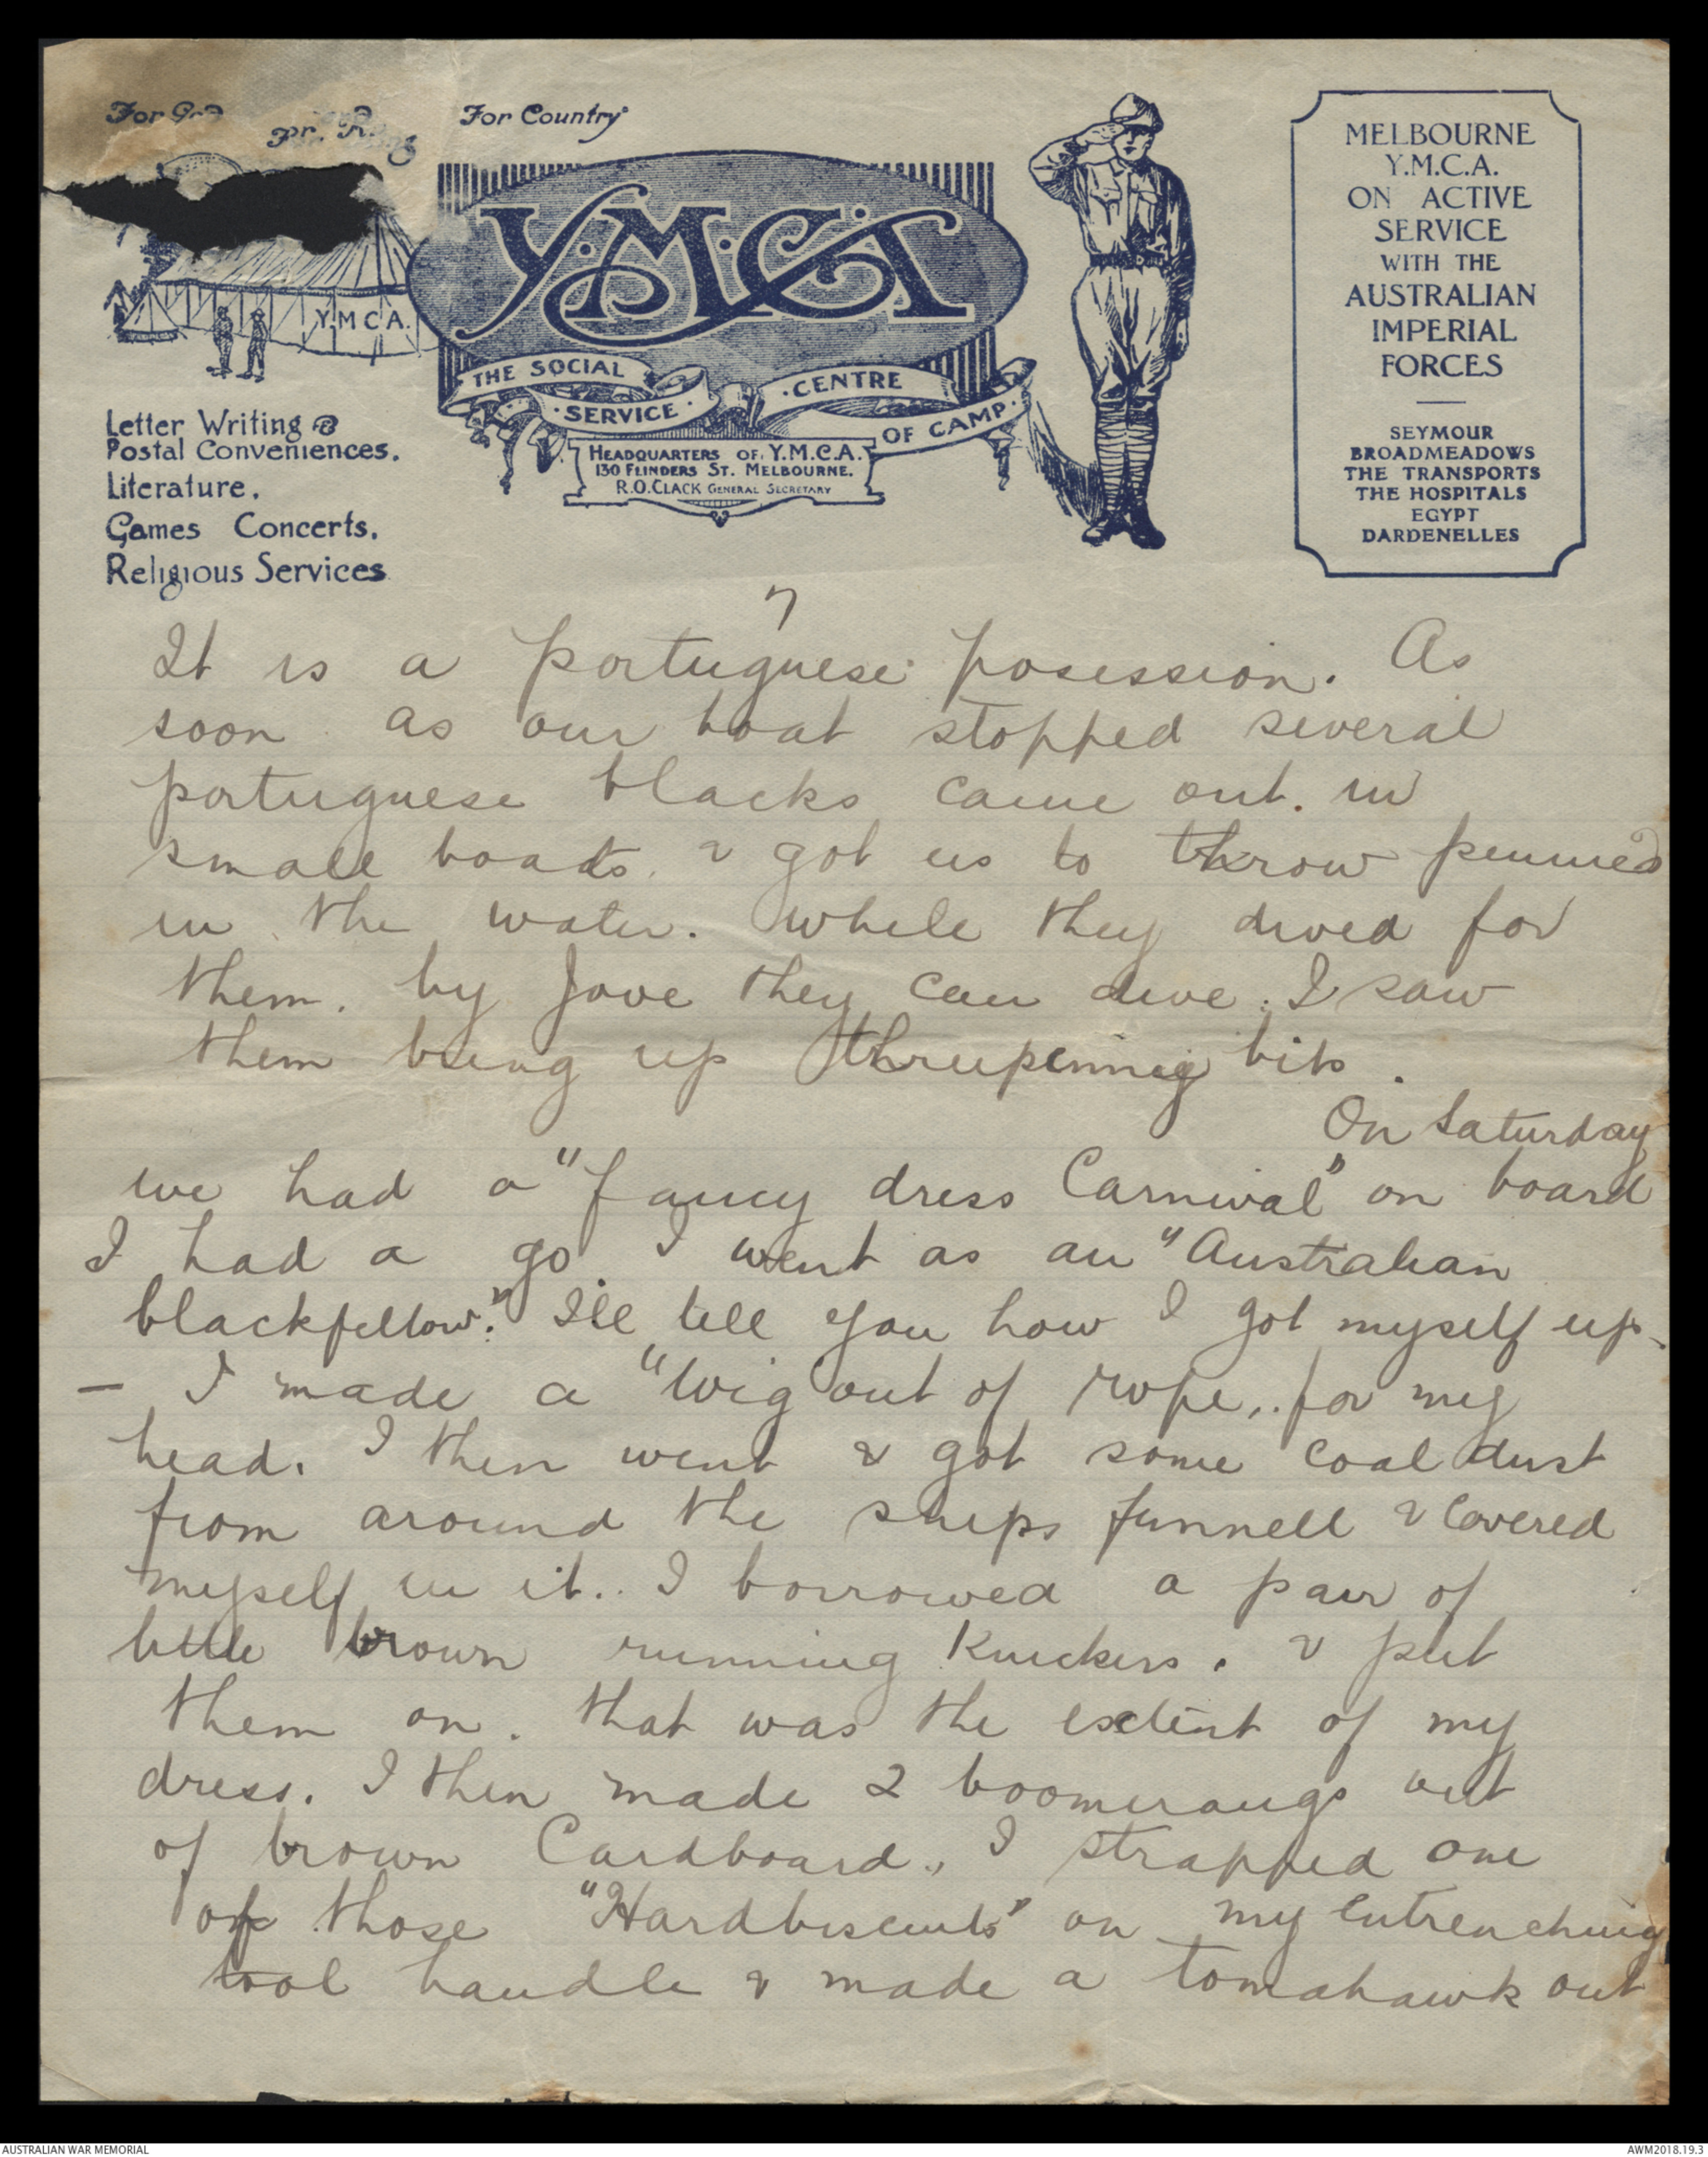 For God For King For Country
Y.M.C.A.
Y.M.C.A.
THE SOCIAL
SERVICE
CENTRE
OF CAMP
HEADQUARTERS OF Y.M.C.A.
130 FLINDERS ST. MELBOURNE.
R.O.CLACK GENERAL SECRETARY
Letter Writing &
Postal Conveniences.
Literature.
Games Concerts.
Religious Services
MELBOURNE
Y.M.C.A.
ON ACTIVE
SERVICE
WITH THE
AUSTRALIAN
IMPERIAL
FORCES
SEYMOUR
BROADMEADOWS
THE TRANSPORTS
THE HOSPITALS
EGYPT
DARDENELLES
7
It is a portuguese posession. As
soon as our boat stopped several
portuguese blacks came out. in
small boats. & got us to throw pennies
in the water. while they dived for
them. by Jove they can dive. I saw
them bring up thrupennig bits.
On Saturday
we had a "fancy dress Carnival" on board
I had a go. I went as an "Australian
blackfellow." I'll tell you how I got myself up.
— I made a "Wig out of rope,. for my
head. I then went & got some coal dust
from around the ships funnell & Covered
myself in it.. I borrowed a pair of
little brown running Knickers. & put
them on. that was the extent of my
dress. I then made 2 boomerangs out
of brown Cardboard., I strapped one
of those "Hardbiscuits" on my entrenching
tool handle & made a tomahawk out
AUSTRALIAN WAR MEMORIAL
AWM2018.19.3